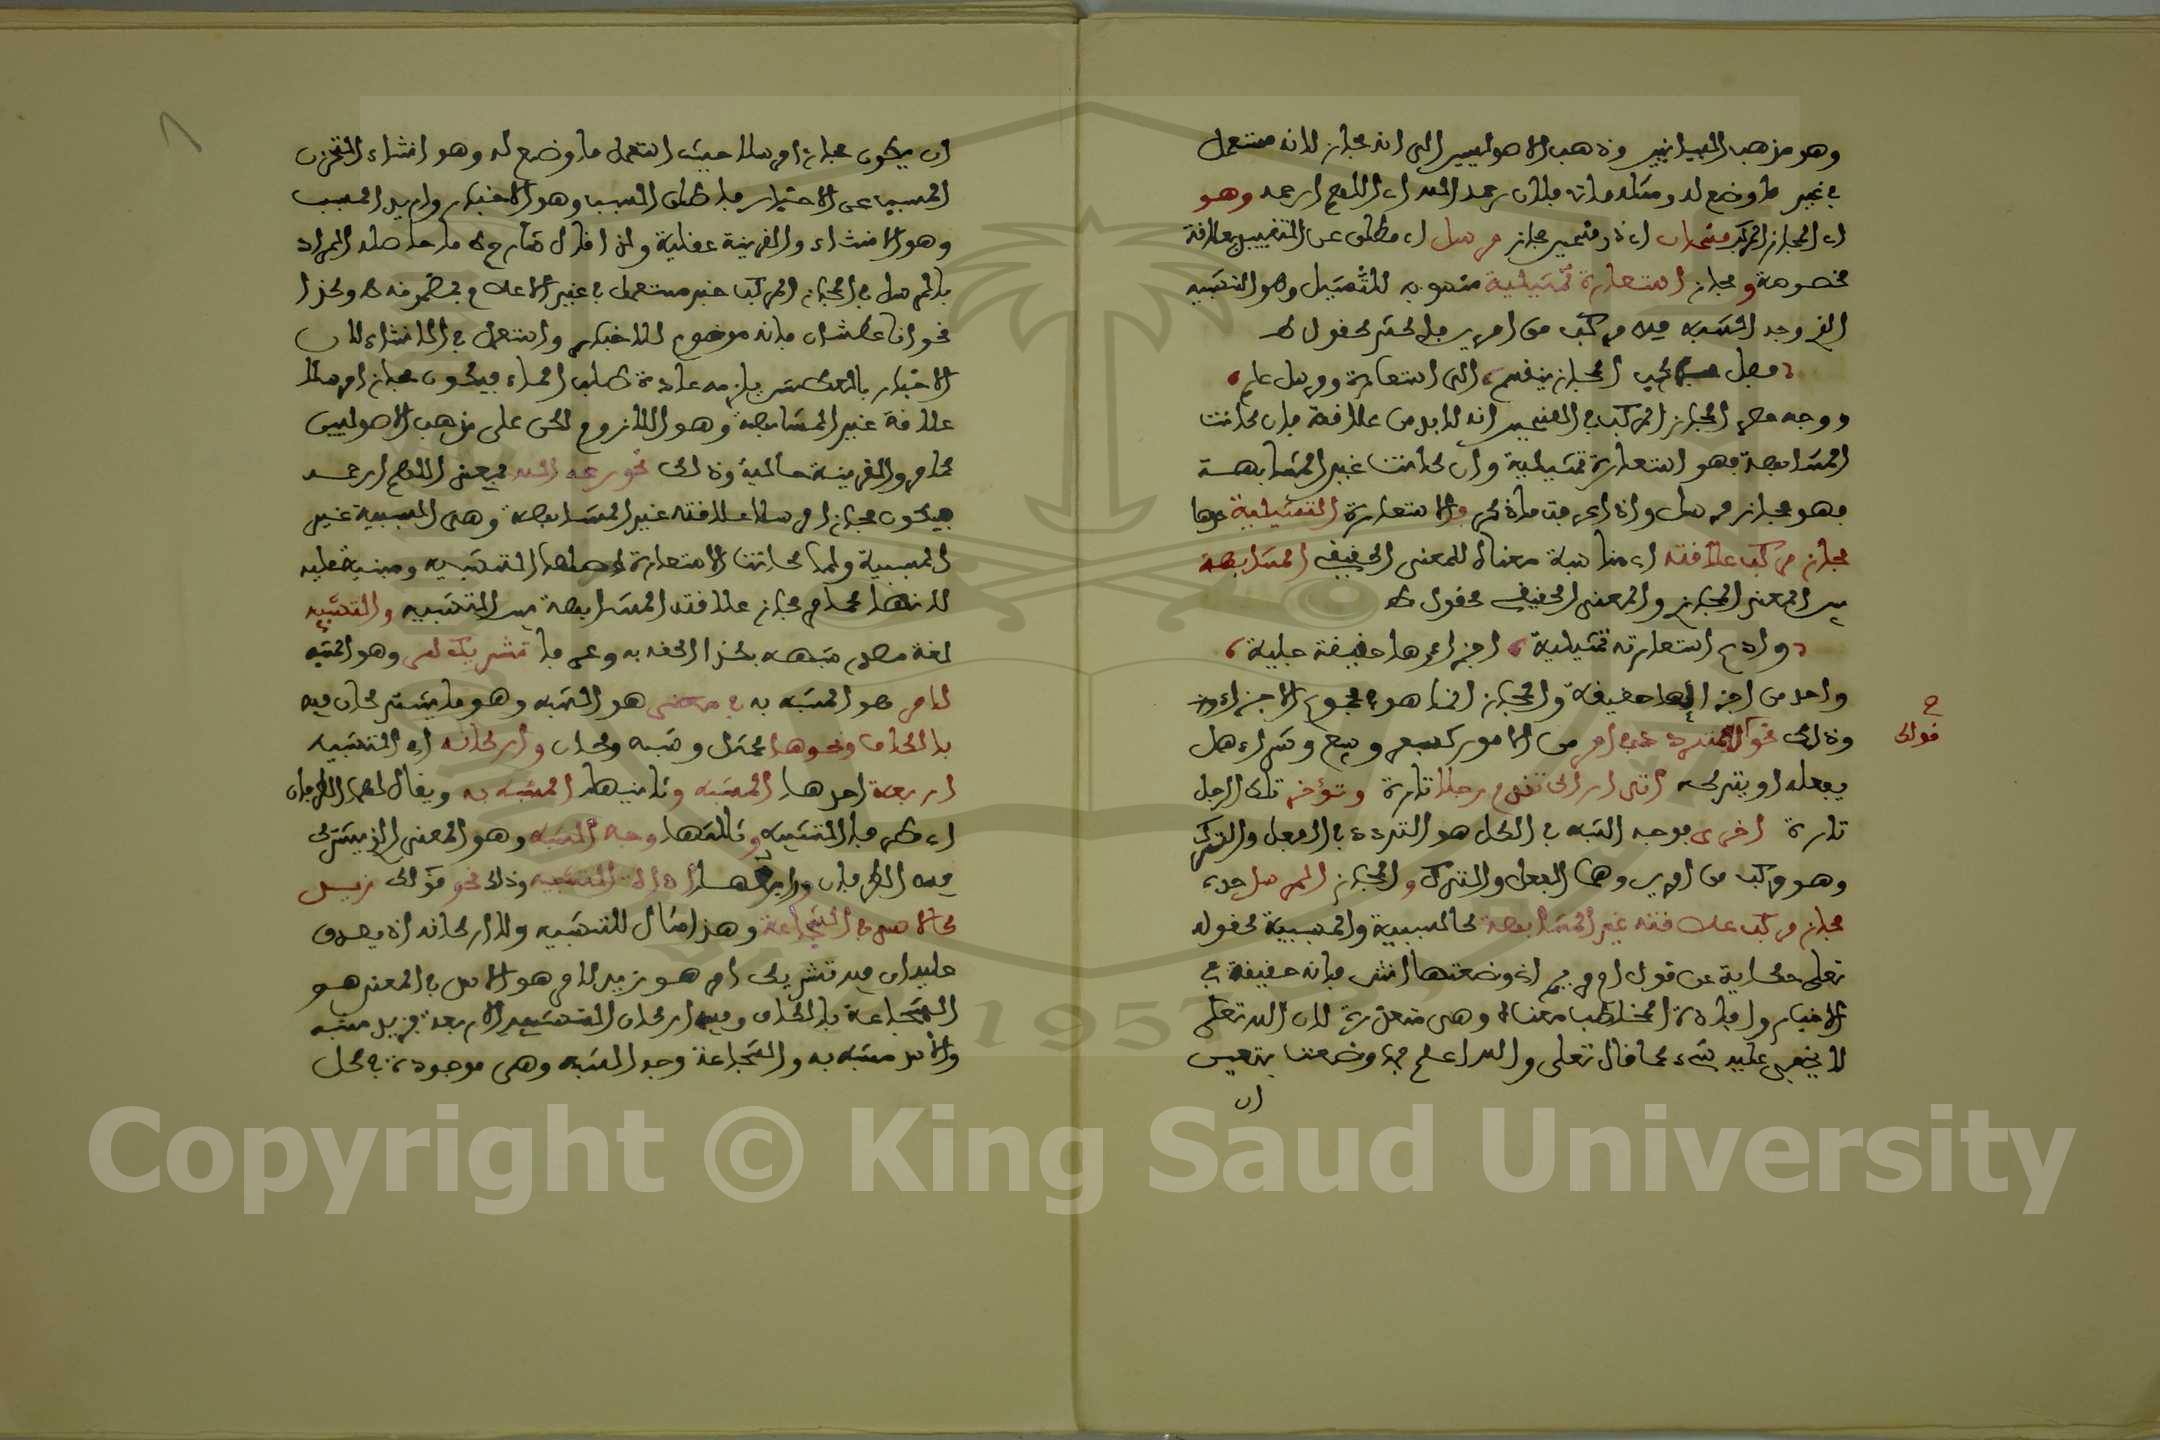 وهو مذهب البيانيين وذهب الاصوليين الى انه مجاز لانه مستعمل
في غير ما وضع له ومثله مات فلان رحمه الله اي اللهم ارحمه وهو
اي المجاز المركب قسمان اي ذو قسمين مجاز مرسل اي مطلق عن التقييد بعلاقة
مخصوصة ومجاز استعارة تمثيلية منسوبة للتمثيل وهو التشبيه
الذي وجه الشبه فيه مركب من امرين فاكثر كقول
فصل المجاز ينقسم الى استعارة ومرسل علم
ووجه حصر المجاز المركب في القسمين انه لا بد من علاقة فان كانت
المشابهة فهو استعارة تمثيلية وان كانت غير المشابهة
فهو مجاز مرسل واذا عرفت ما ذكر فالاستعارة التمثيلية حدها
مجاز مركب علاقته اي مناسبة معناه للمعنى الحقيقي المشابهة
بين المعنى المجازي والمعنى الحقيقي كقول
وادع استعارته تمثيلية اجزاءها حقيقة جلية
واحد من اجزائها حقيقة والمجاز انما هو في مجموع الاجزاء
وذلك نحو قولك للمتردد في امر من الامور كسفر وبيع وشراء هل
يفعله او يتركه اني اراك تقدم رجلا تارة وتؤخر تلك الرجل
تارة اخرى فوجه الشبه في الكل هو التردد في الفعل والترك
وهو مركب من امرين وهما الفعل والترك والمجاز المرسل حده
مجاز مركب علاقته غير المشابهة كالسببية والمسببية كقوله
تعلى حكاية عن قول ام مريم اني وضعتها انثى فانه حقيقة في
الاخبار وافادة المخاطب معناه وهي متعذرة لان الله تعلى
لا يخفى عليه شيء كما قال تعلى والله اعلم بما وضعت فتعين
ان
ح
قولك
ان يكون مجازا مرسلا حيث استعمل ما وضع له وهو انشاء التحزن
المسبب عن الاخبار فاطلق السبب وهو الاخبار واريد المسبب
وهو الانشاء والقرينة عقلية ولذا قال شارح ما حاصله المراد
بالمرسل في المجاز المركب خبر مستعمل في غير الاعلام بمضمونه وكذا
نحو انا عطشان فانه موضوع للاخبار واستعمل في الانشاء لان
الاخبار بالعطش يلزمه عادة طلب الماء فيكون مجازا مرسلا
علاقته غير المشابهة وهو اللازوم لكن على مذهب الاصوليين
كما مر والقرينة حالية وذلك نحو رحمه الله بمعنى اللهم ارحمه
فيكون مجازا مرسلا علاقته غير المشابهة وهي السببية غير
المسببية ولما كانت الاستعارة اصلها التشبيه ومبنية عليه
لانها كما مر مجاز علاقته المشابهة بين التشبيه والتشبيه
لغة مصدر شبهه بكذا الحقه به وعرفا تشريك امر وهو المشبه
لامر هو المشبه به في معنى هو الشبه وهو ما يشتركان فيه
بالكاف ونحوها كمثل وشبه وكان واركانه اي التشبيه
اربعة احدها المشبه وثانيها المشبه به ويقال لهما الطرفان
اي طرفا التشبيه وثالثها وجه الشبه وهو المعنى الذي يشترك
فيه الطرفان ورابعها اداة التشبيه وذلك نحو قولك زيد
كالاسد في الشجاعة وهذا مثال للتشبيه ولاركانه اذ يصدق
عليه ان فيه تشريك امر هو زيد لامر هو الاسد في المعنى هو
الشجاعة بالكاف وفيه اركان التشبيه الاربعة فزيد مشبه
والاسد مشبه به والشجاعة وجه الشبه وهي موجودة في كل
Copyright © King Saud University
1957